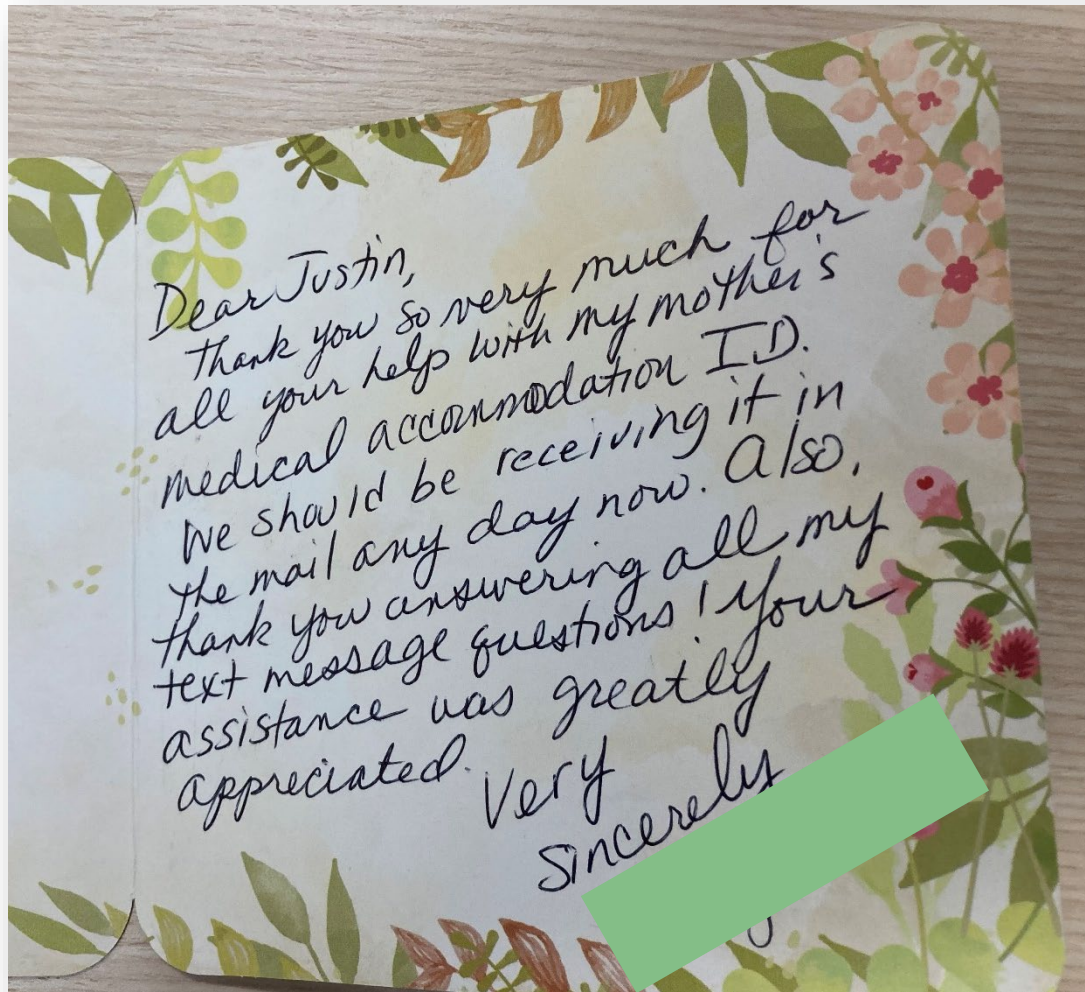 Dear Justin,
Thank you so very much for
all your help with my mother's
medical accommodation ID.
We should be receiving it in
the mail any day now. Also,
thank you answering all my
text message questions! Your
assistance was greatly
appreciated.
Very
Sincerely